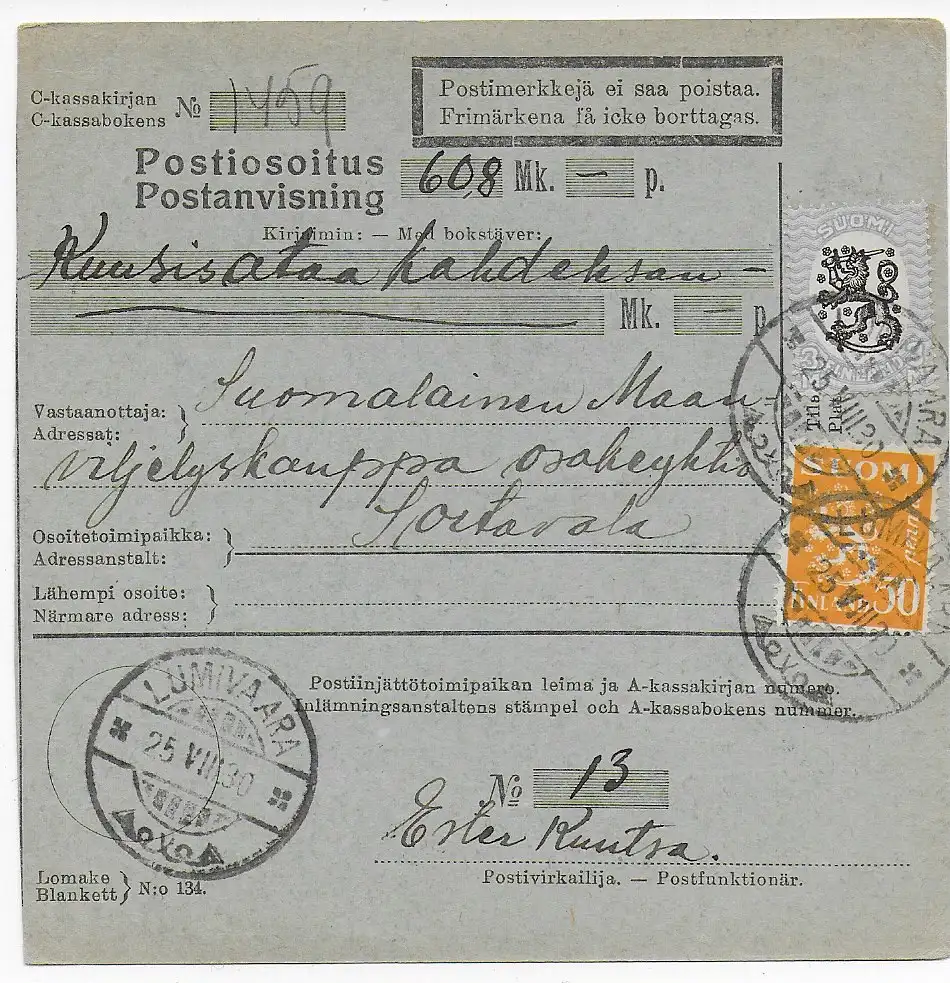 C-kassakirjan
C-kassabokens № 1459
Postimerkkejä ei saa poistaa.
Frimärkena få icke borttagas.
Postiosoitus
Postanvisning 608 Mk. — p.
Kirjaimin: — Med bokstäver:
Kuusisataa kahdeksan —
Mk. — p
SUOMI
FINLAND
Vastaanottaja:
Adressat:
Suomalainen Maan-
viljelyskauppa osakeyhtiö
Osoitetoimipaikka:
Adressanstalt:
Sortavala
Lähempi osoite:
Närmare adress:
SUOMI
50
LUMIVAARA
25 VIII 30
Postiinjättötoimipaikan leima ja A-kassakirjan numero.
Inlämningsanstaltens stämpel och A-kassabokens nummer.
№ 13
Ester Kuntsa.
Postivirkailija. — Postfunktionär.
Lomake
Blankett N:o 134.